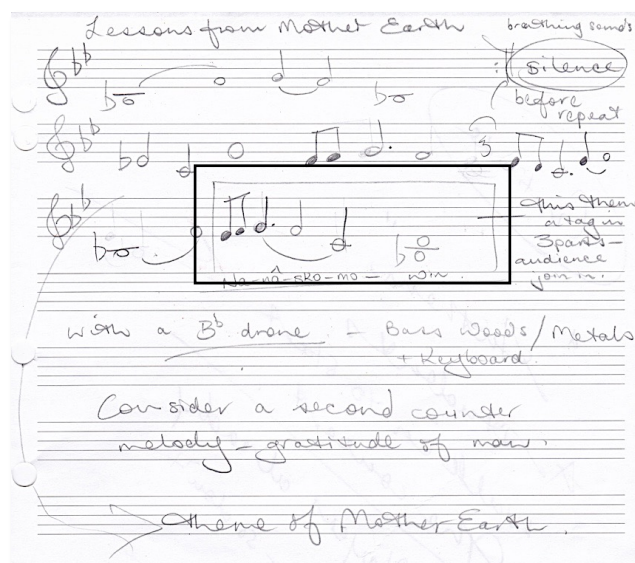 Lessons from Mother Earth
breathing sounds
silence
before
repeat
this theme
a tag in
3 parts -
audience
join in.
Na-nâ-sko-mo - win.
with a Bb drone - Bass Woods/Metals
+ Keyboard.
Consider a second counter
melody - gratitude of man.
theme of Mother Earth.